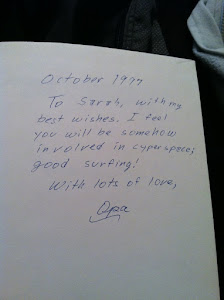 October 1997
To Sarah, with my
best wishes. I feel
you will be somehow
involved in cyperspace;
good surfing!
With lots of love,
Opa